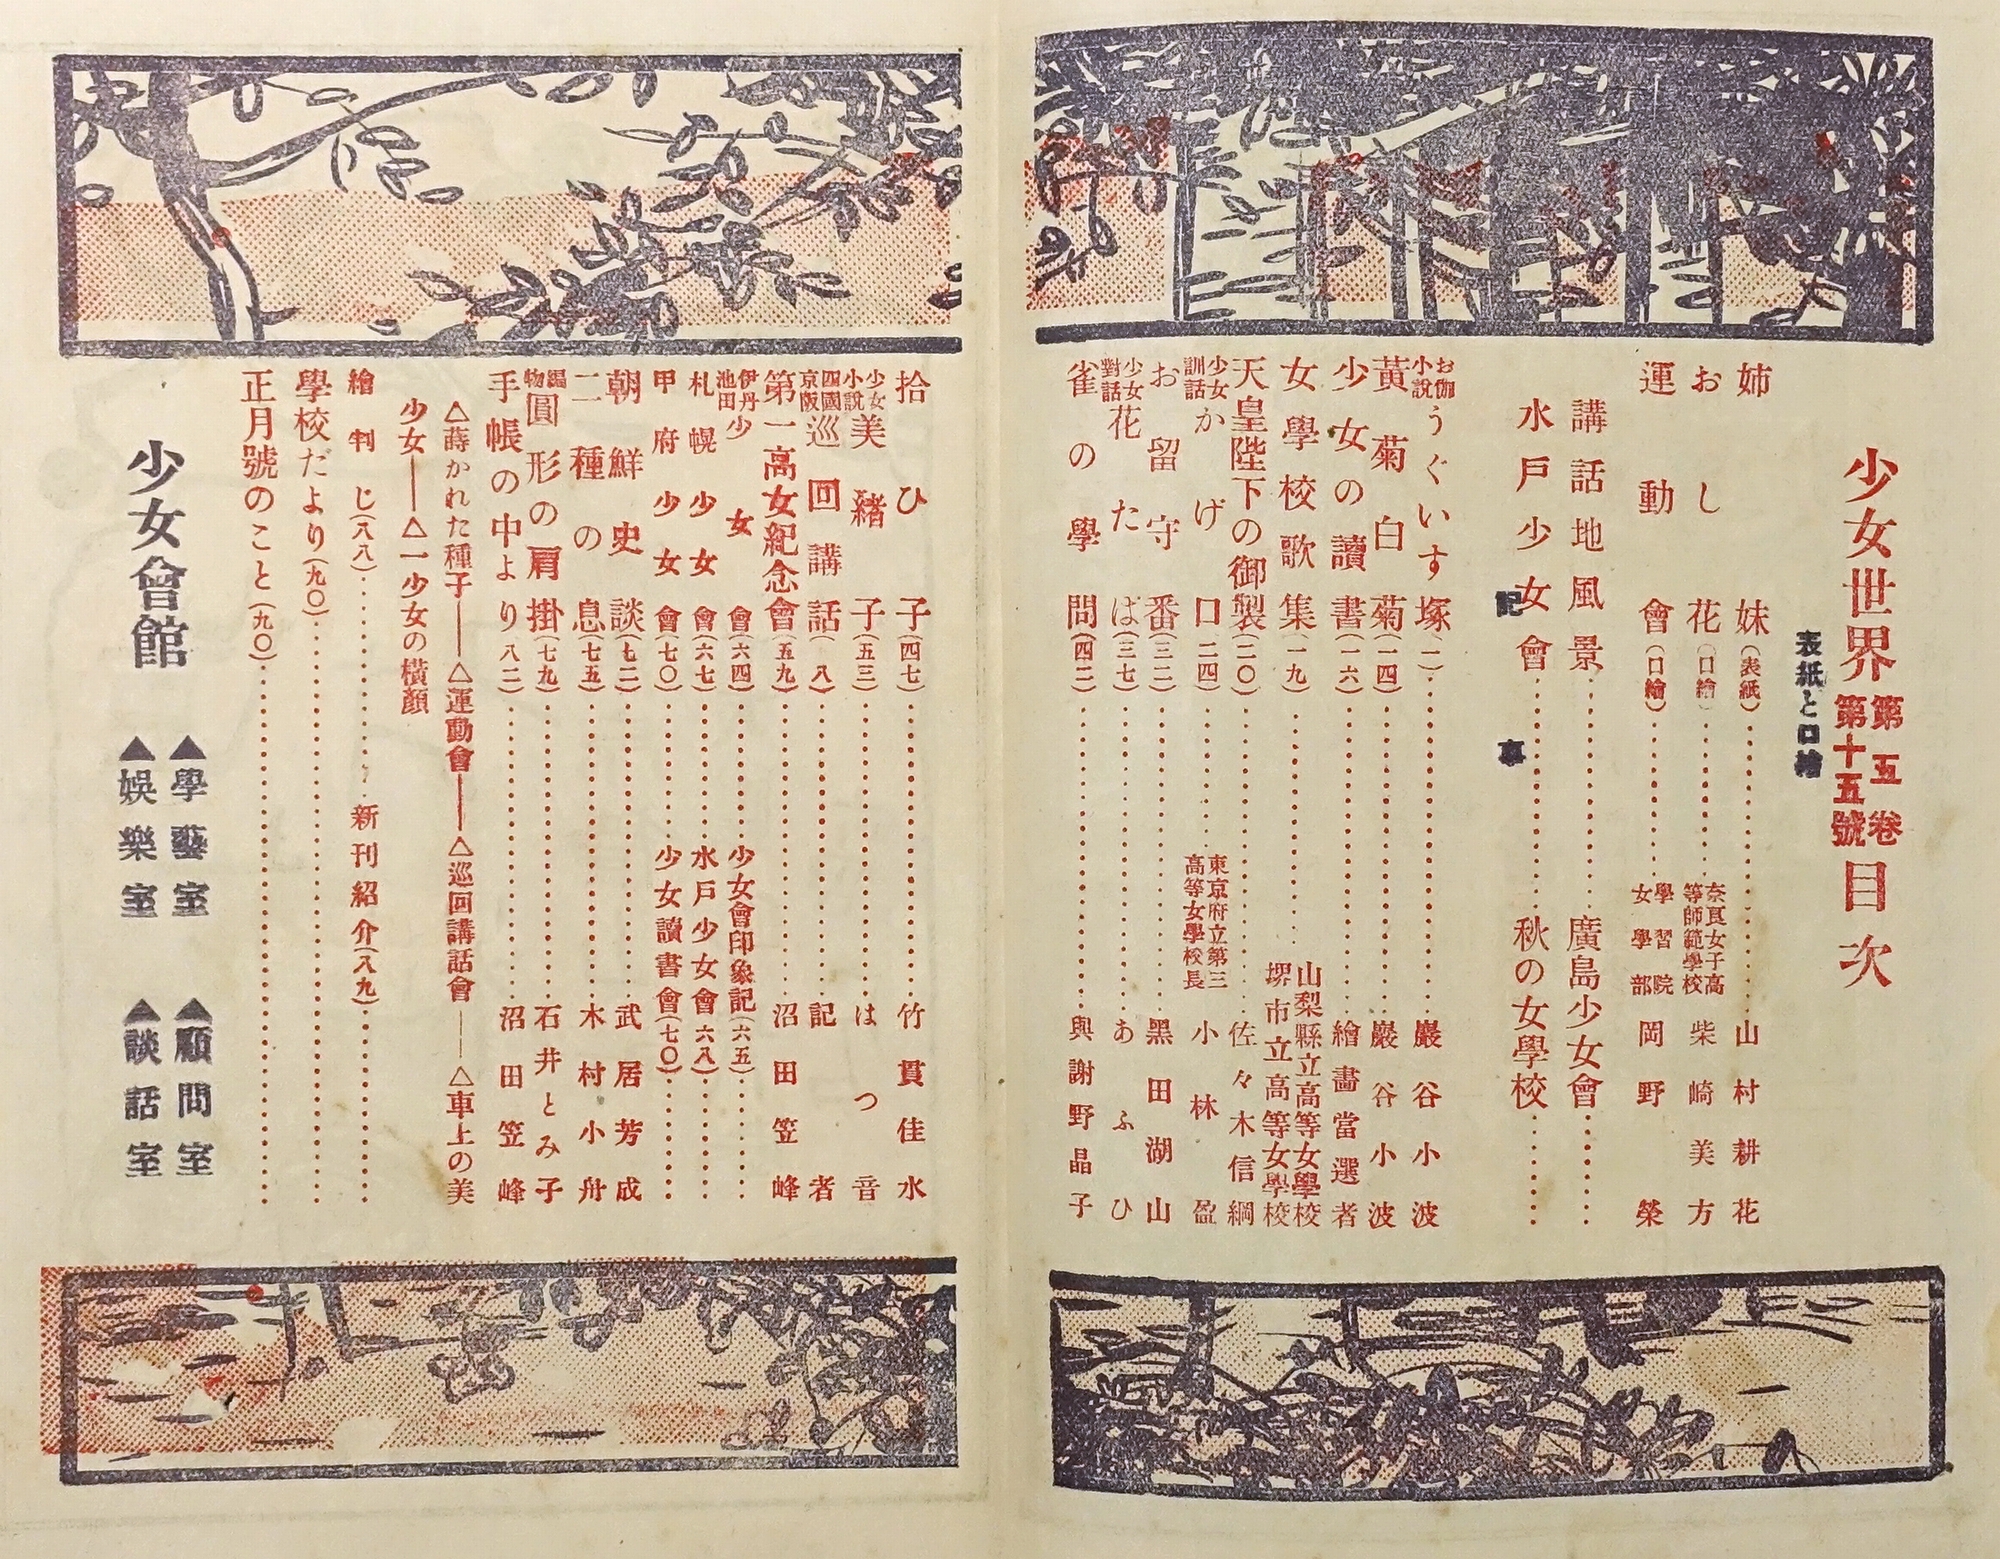 少女世界 第五卷 第十五號 目次
表紙と口繪
姉妹(表紙)……山村耕花
おし花(口繪)……奈良女子高等師範學校 柴崎美方
運動會(口繪)……學習院女學部 岡野榮
講話地風景……廣島少女會……
水戸少女會……秋の女學校……
記事
お伽小說 うぐいす塚(一)……巖谷小波
黄菊白菊(一四)……巖谷小波
少女の讀書(一六)……繪畵當選者
女學校歌集(一九)……山梨縣立高等女學校 堺市立高等女學校
天皇陛下の御製(二〇)……佐々木信綱
少女訓話 かげ口(二四)……東京府立第三高等女學校長 小林盈
お留守番(三二)……黑田湖山
少女對話 花たば(三七)……あふひ
雀の學問(四二)……與謝野晶子
拾ひ子(四七)……竹貫佳水
少女小說 美緖子(五三)……はつ音
四國京阪 巡回講話(八)……記者
第一高女紀念會(五九)……沼田笠峰
伊丹池田 少女會(六四)……少女會印象記(六五)……
札幌少女會(六七)……水戸少女會(六八)……
甲府少女會(七〇)……少女讀書會(七〇)……
朝鮮史談(七二)……武居芳成
二種の息(七五)……木村小舟
編物 圓形の肩掛(七九)……石井とみ子
手帳の中より(八二)……沼田笠峰
△蒔かれた種子——△運動會——△巡回講話會——△車上の美
少女——△一少女の橫顏
繪判じ(八八)……新刊紹介(八九)……
學校だより(九〇)……
正月號のこと(九〇)……
少女會館
▲學藝室 ▲顧問室
▲娛樂室 ▲談話室